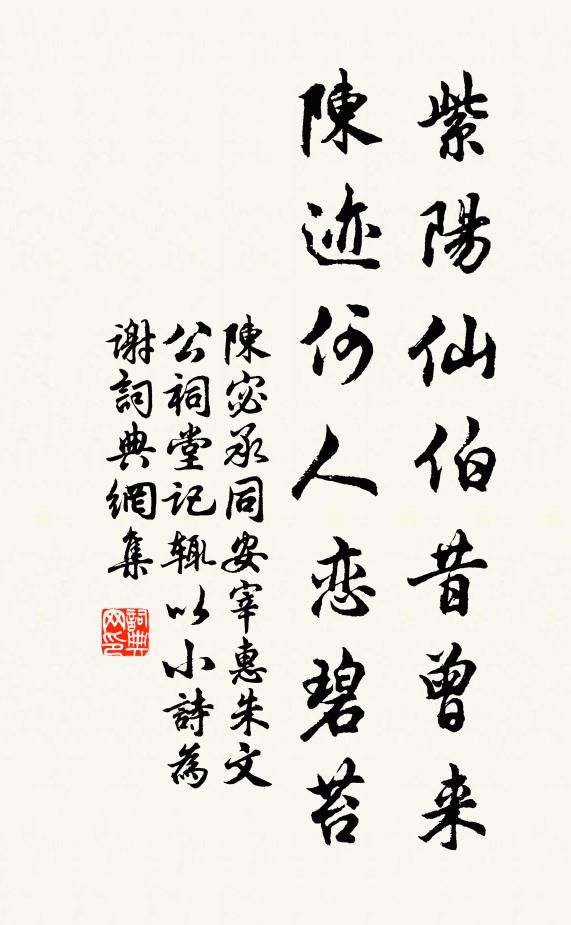 紫陽仙伯昔曾来
陳迹何人恋碧苔
陳宓承同安宰惠朱文
公祠堂记輒以小詩為
谢詞典網集
詞典网印